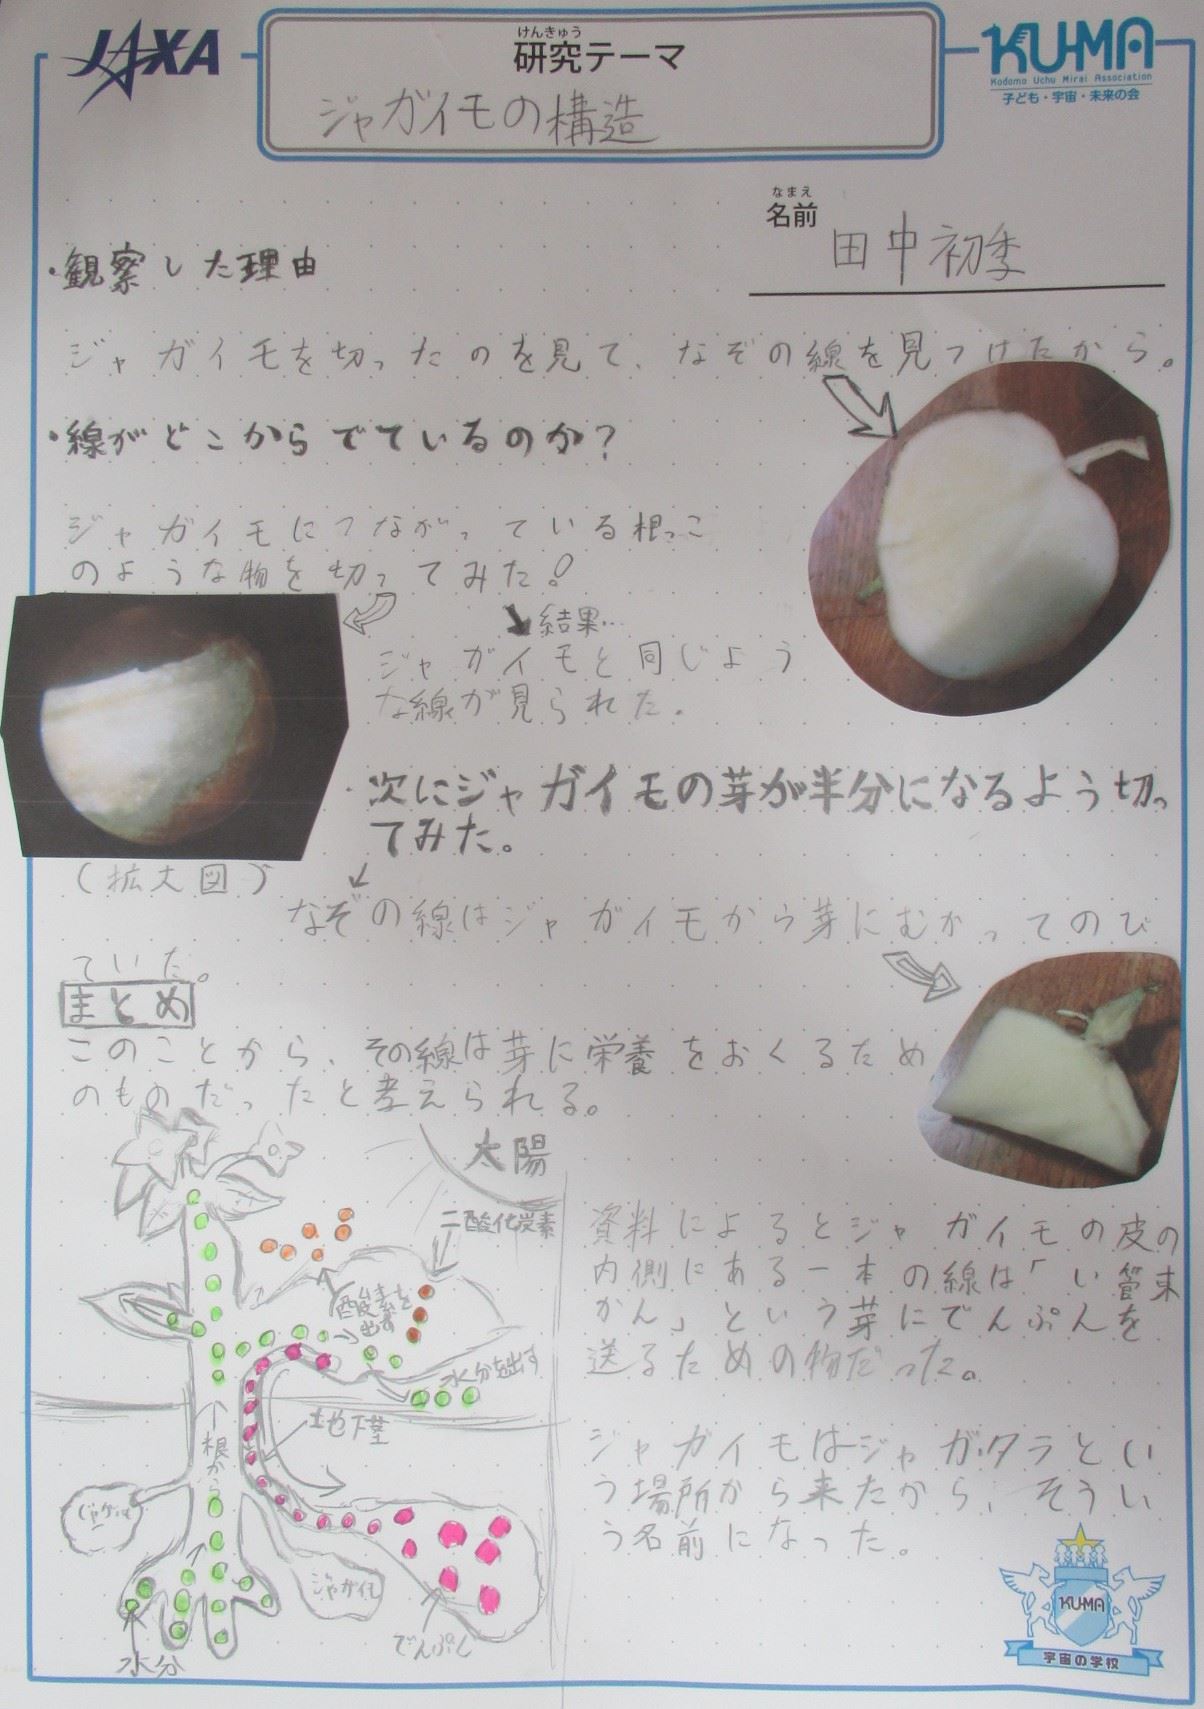 JAXA
けんきゅう
研究テーマ
ジャガイモの構造
KU-MA
Kodomo Uchu Mirai Association
子ども・宇宙・未来の会
なまえ
名前
田中初季
・観察した理由
ジャガイモを切ったのを見て、なぞの線を見つけたから。
・線がどこからでているのか?
ジャガイモにつながっている根っこ
のような物を切ってみた!
結果…
ジャガイモと同じよう
な線が見られた。
・次にジャガイモの芽が半分になるよう切っ
てみた。
(拡大図)
なぞの線はジャガイモから芽にむかってのび
ていた。
まとめ
このことから、その線は芽に栄養をおくるため
のものだったと考えられる。
太陽
二酸化炭素
酸素を
出す
水分を出す
地下茎
根から
ジャガイモ
ジャガイモ
でんぷん
水分
資料によるとジャガイモの皮の
内側にある一本の線は「い管束
かん」という芽にでんぷんを
送るための物だった。
ジャガイモはジャガタラとい
う場所から来たから、そうい
う名前になった。
KU-MA
宇宙の学校